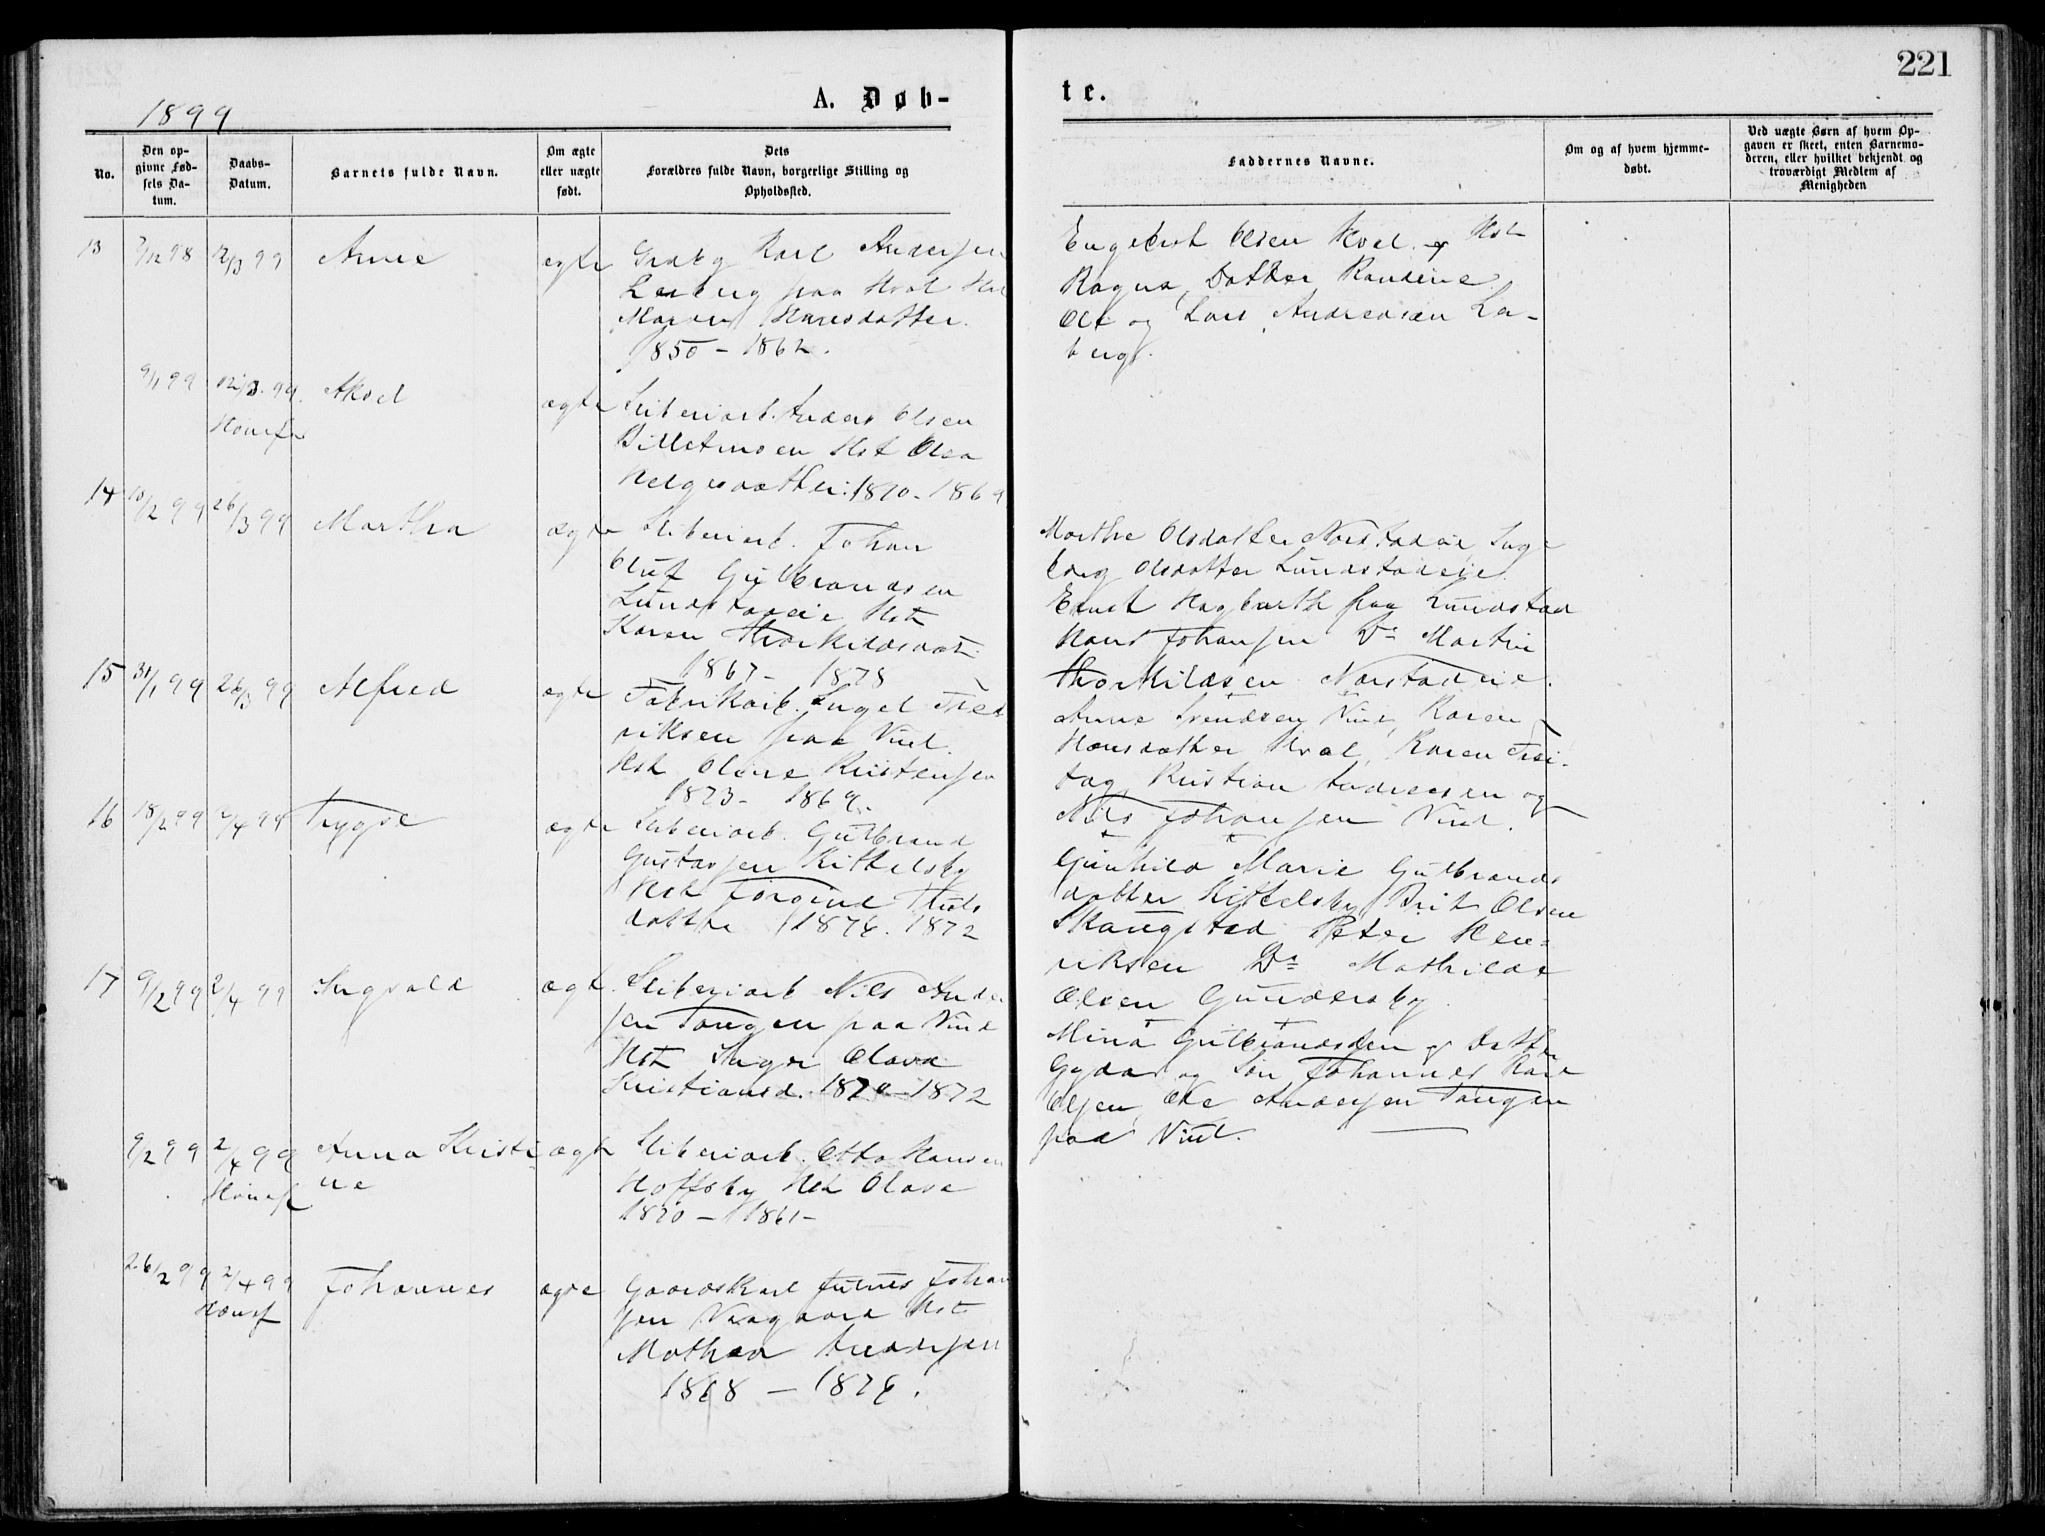 221
1899
A. Døb-
te.
No.
Den op-
givne Fød-
sels Da-
tum.
Daabs-
Datum.
Barnets fulde Navn.
Om ægte
eller uægte
født.
Dets
Forældres fulde Navn, borgerlige Stilling og
Opholdssted.
Faddernes Navne.
Om og af hvem hjemme-
døbt.
Ved uægte Børn af hvem Op-
gaven er skeet, enten Barnemo-
deren, eller hvilket bekjendt og
troværdigt Medlem af
Menigheden
13 7/12 98 12/3 99 Arne ægte Karl Andersen
paa Hval
Maren Hansdatter.
1850 - 1862.
Engebret Olsen Hval og Hst
Ragna, Datter Randine
Ole og Lars Andreasen La-
berg.
9/1 99 12/3 99. Aksel ægte Sliberiarb. Anders Olsen
Hønefos
Billetmoen Hst Olea
Helgesdatter: 1870 - 1869
14 10/2 99 26/3 99 Martha ægte Sliberiarb. Johan
Oluf Gulbrandsen
Lundstadeie Hst
Karen Thorkildsdat
1867 - 1878
Marthe Olsdatter Norstadeie Inge-
borg Olsdatter Lundstadeie.
Ernst Hagbarth Lundstad
Hans Johansen Ds Martin
Thorkildsen Norstadeie.
15 31/1 99 26/3 99 Alfred ægte Fabrikarb. Engel Fred
riksen paa Vind.
Hst Oline Kristensen
1873 - 1869.
Anne Svendsen Vind, Karen
Hansdatter Hval, Karen Frei-
dag, Kristian Andresen og
Nils Johansen Vind.
16 18/2 99 2/4 99 Trygve ægte Sliberiarb. Gulbrand
Gustavsen Kittelsby
Hst Jørgine Truls
datter 1874. 1872
Gunhild Marie Gulbrands
datter Kittelsby, Brit Olsen
Skaugstad Peter Hen-
riksen Ds Mathilde
Olsen Gundersby.
17 9/2 99 2/4 99 Ingvald ægt. Sliberiarb Nils Ander
sen Tangen paa Vind
Hst Inger Olava
Kristiansd. 1870 - 1872
Mina Gulbrandsden og Datter
Gyda og Søn Johannes Karl
Olsen, Ole Andersen Tangen
paa Vind.
9/2 99 2/4 99 Anna Kristi ægte Sliberiarb. Otto Hansen
Hønef
ne
Hoffsby Hst Olava
1870 - 1861 -
26/2 99 2/4 99 Johannes ægte Gaardskarl Julius Johan
Hønef
sen Vaagaard Hst
Mathea Andersen
1868 - 1876.